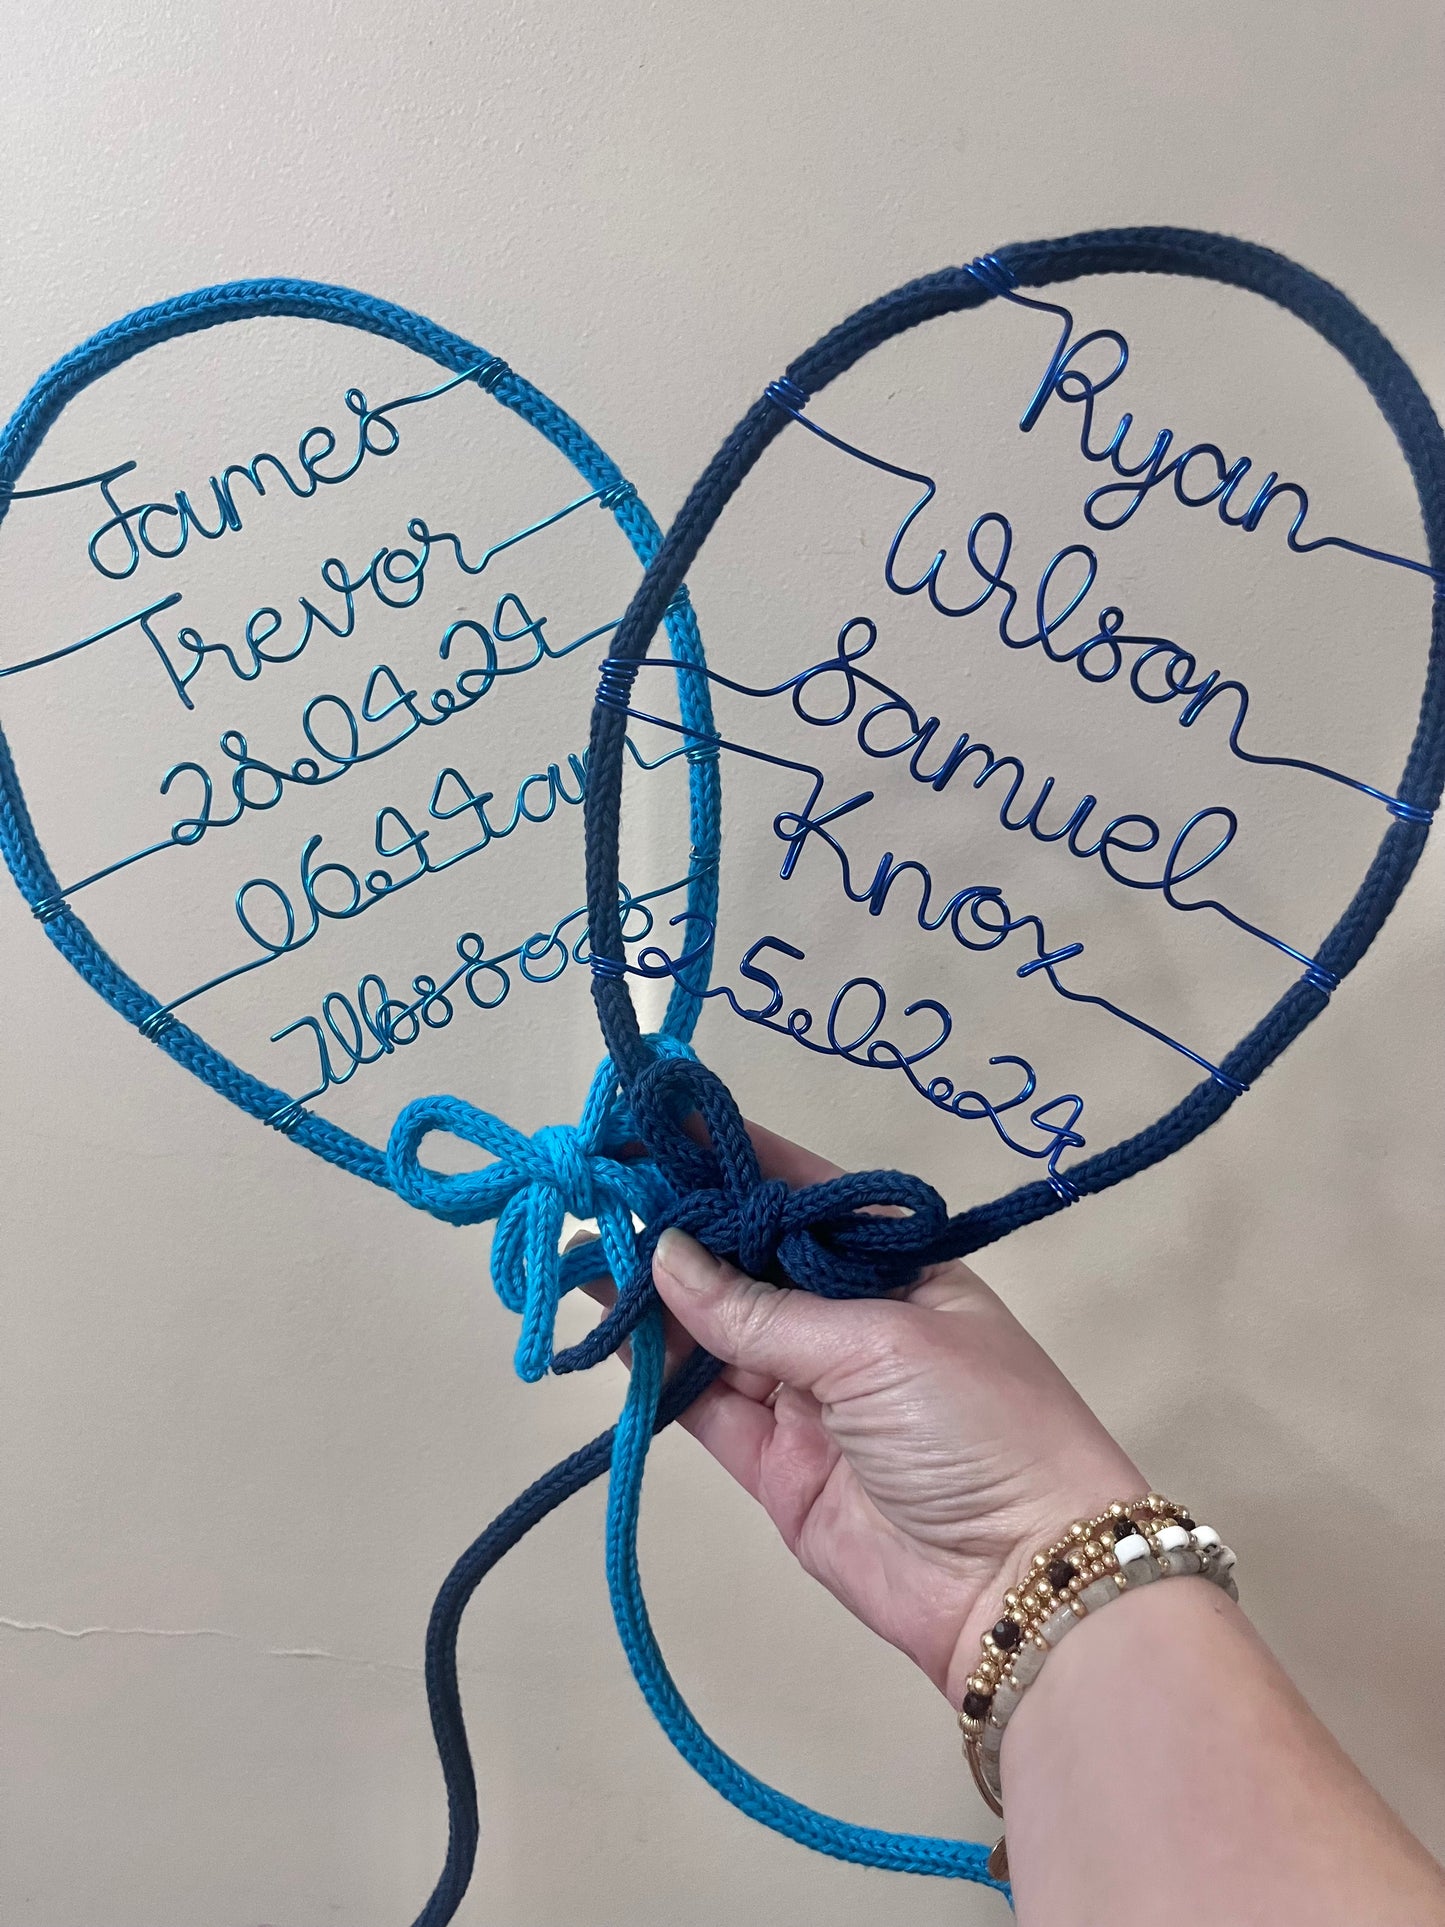 James
Trevor
28.04.24
06.44am
7lbs 8oz
Ryan
Wilson
Samuel
Knox
25.02.24